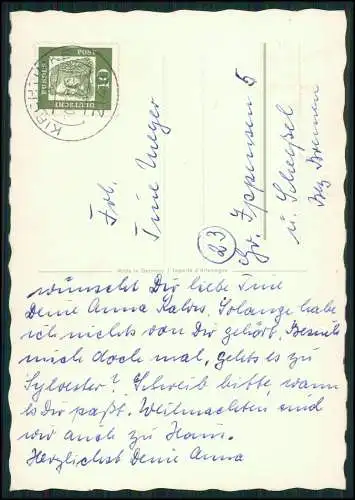 DEUTSCHE
BUNDES
POST
10
Frl.
Tine Meyer
(23)
Gr. Ippensen 5
ü. Scheeßel
Bez Bremen
Made in Germany / Importé d'Allemagne
wünscht Dir liebe Tine
Deine Anna . Solange habe
ich nichts von Dir gehört. Besuch
mich doch mal, gehts es zu
Sylvester? Schreib bitte, wann
es Dir paßt. Weihnachten sind
wir auch zu Haus.
Herzlichst Deine Anna